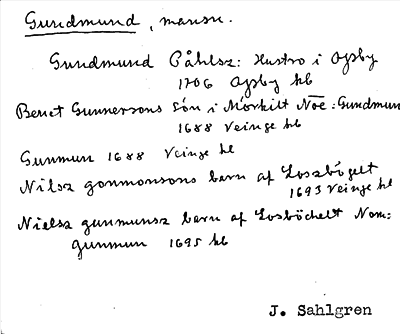 Gundmund, mansn.
Gundmund Påhlsz: Hustro i Ogsby
1706 Ogsby kb
Benet Gunnersons Són i Morkilt Noe: Gundmun
1688 Veinge kb
Gunmun 1688 Veinge kb
Nilsz gonmonsons barn af Loszbögelt
1693 Veinge kb
Nielsz gunmunsz barn af Losböchelt Nom:
gunmun 1695 kb
J. Sahlgren